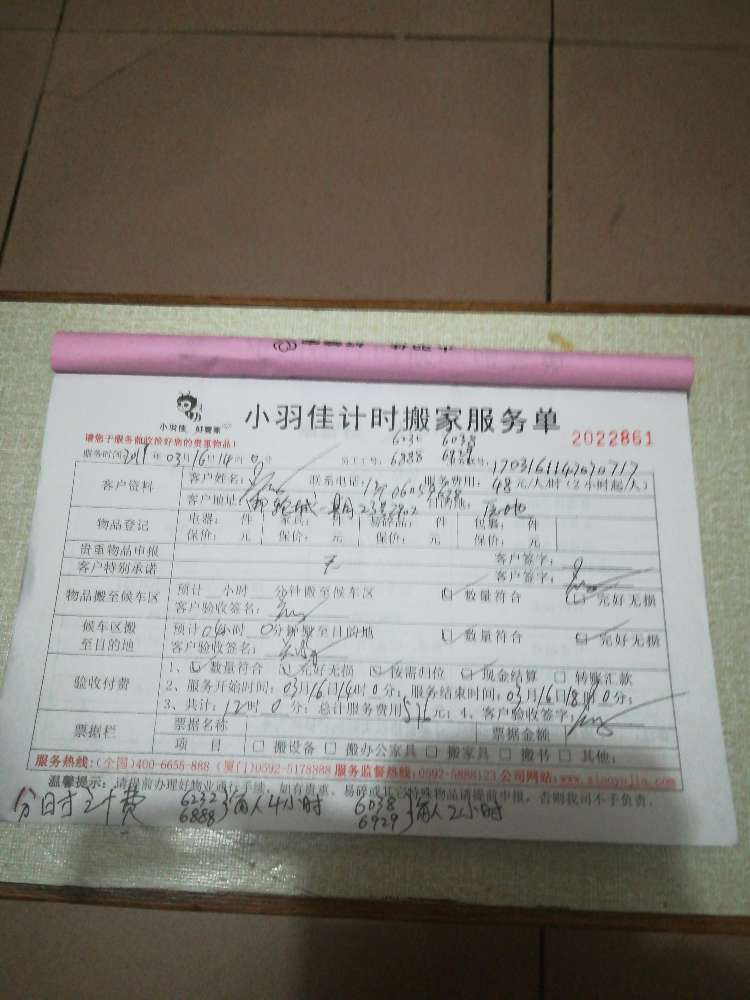 小羽佳 好管家
小羽佳计时搬家服务单
2022861
请您于服务前收拾好您的贵重物品!
6038
服务时间 年03月16日14时 员工工号: 6888 6929
客户资料 客户姓名: 联系电话: 服务费用: 48元/人/时(2小时起/人)
客户地址: 目的地:
物品登记 电器: 件 家具: 件 易碎品: 件 包裹: 件
保价: 元 保价: 元 保价: 元 保价: 元
贵重物品申报 无 客户签字:
客户特别承诺 客户签字:
物品搬至候车区 预计 小时 分钟搬至候车区 数量符合 完好无损
客户验收签名:
候车区搬至目的地 预计04小时 0分钟搬至目的地 数量符合 完好无损
客户验收签名:
验收付费 1、 数量符合 完好无损 按需归位 现金结算 转账汇款
2、服务开始时间: 03月16日14时0分; 服务结束时间: 03月16日18时0分;
3、共计: 12时0分; 总计服务费用576元; 4、客户验收签字:
票据栏 票据名称 票据金额
项 目 搬设备 搬办公家具 搬家具 搬书 其他:
服务热线: (全国)400-6655-888 (厦门)0592-5178888 服务监督热线: 0592-5888123 公司网站: www.xiaoyujia.com
温馨提示: 请提前办理好物业通行手续, 如有贵重、易碎或其它特殊物品请提前申报, 否则我司不予负责.
分日寸工十费 6232 6888 俩人4小时 6038 6929 俩人2小时